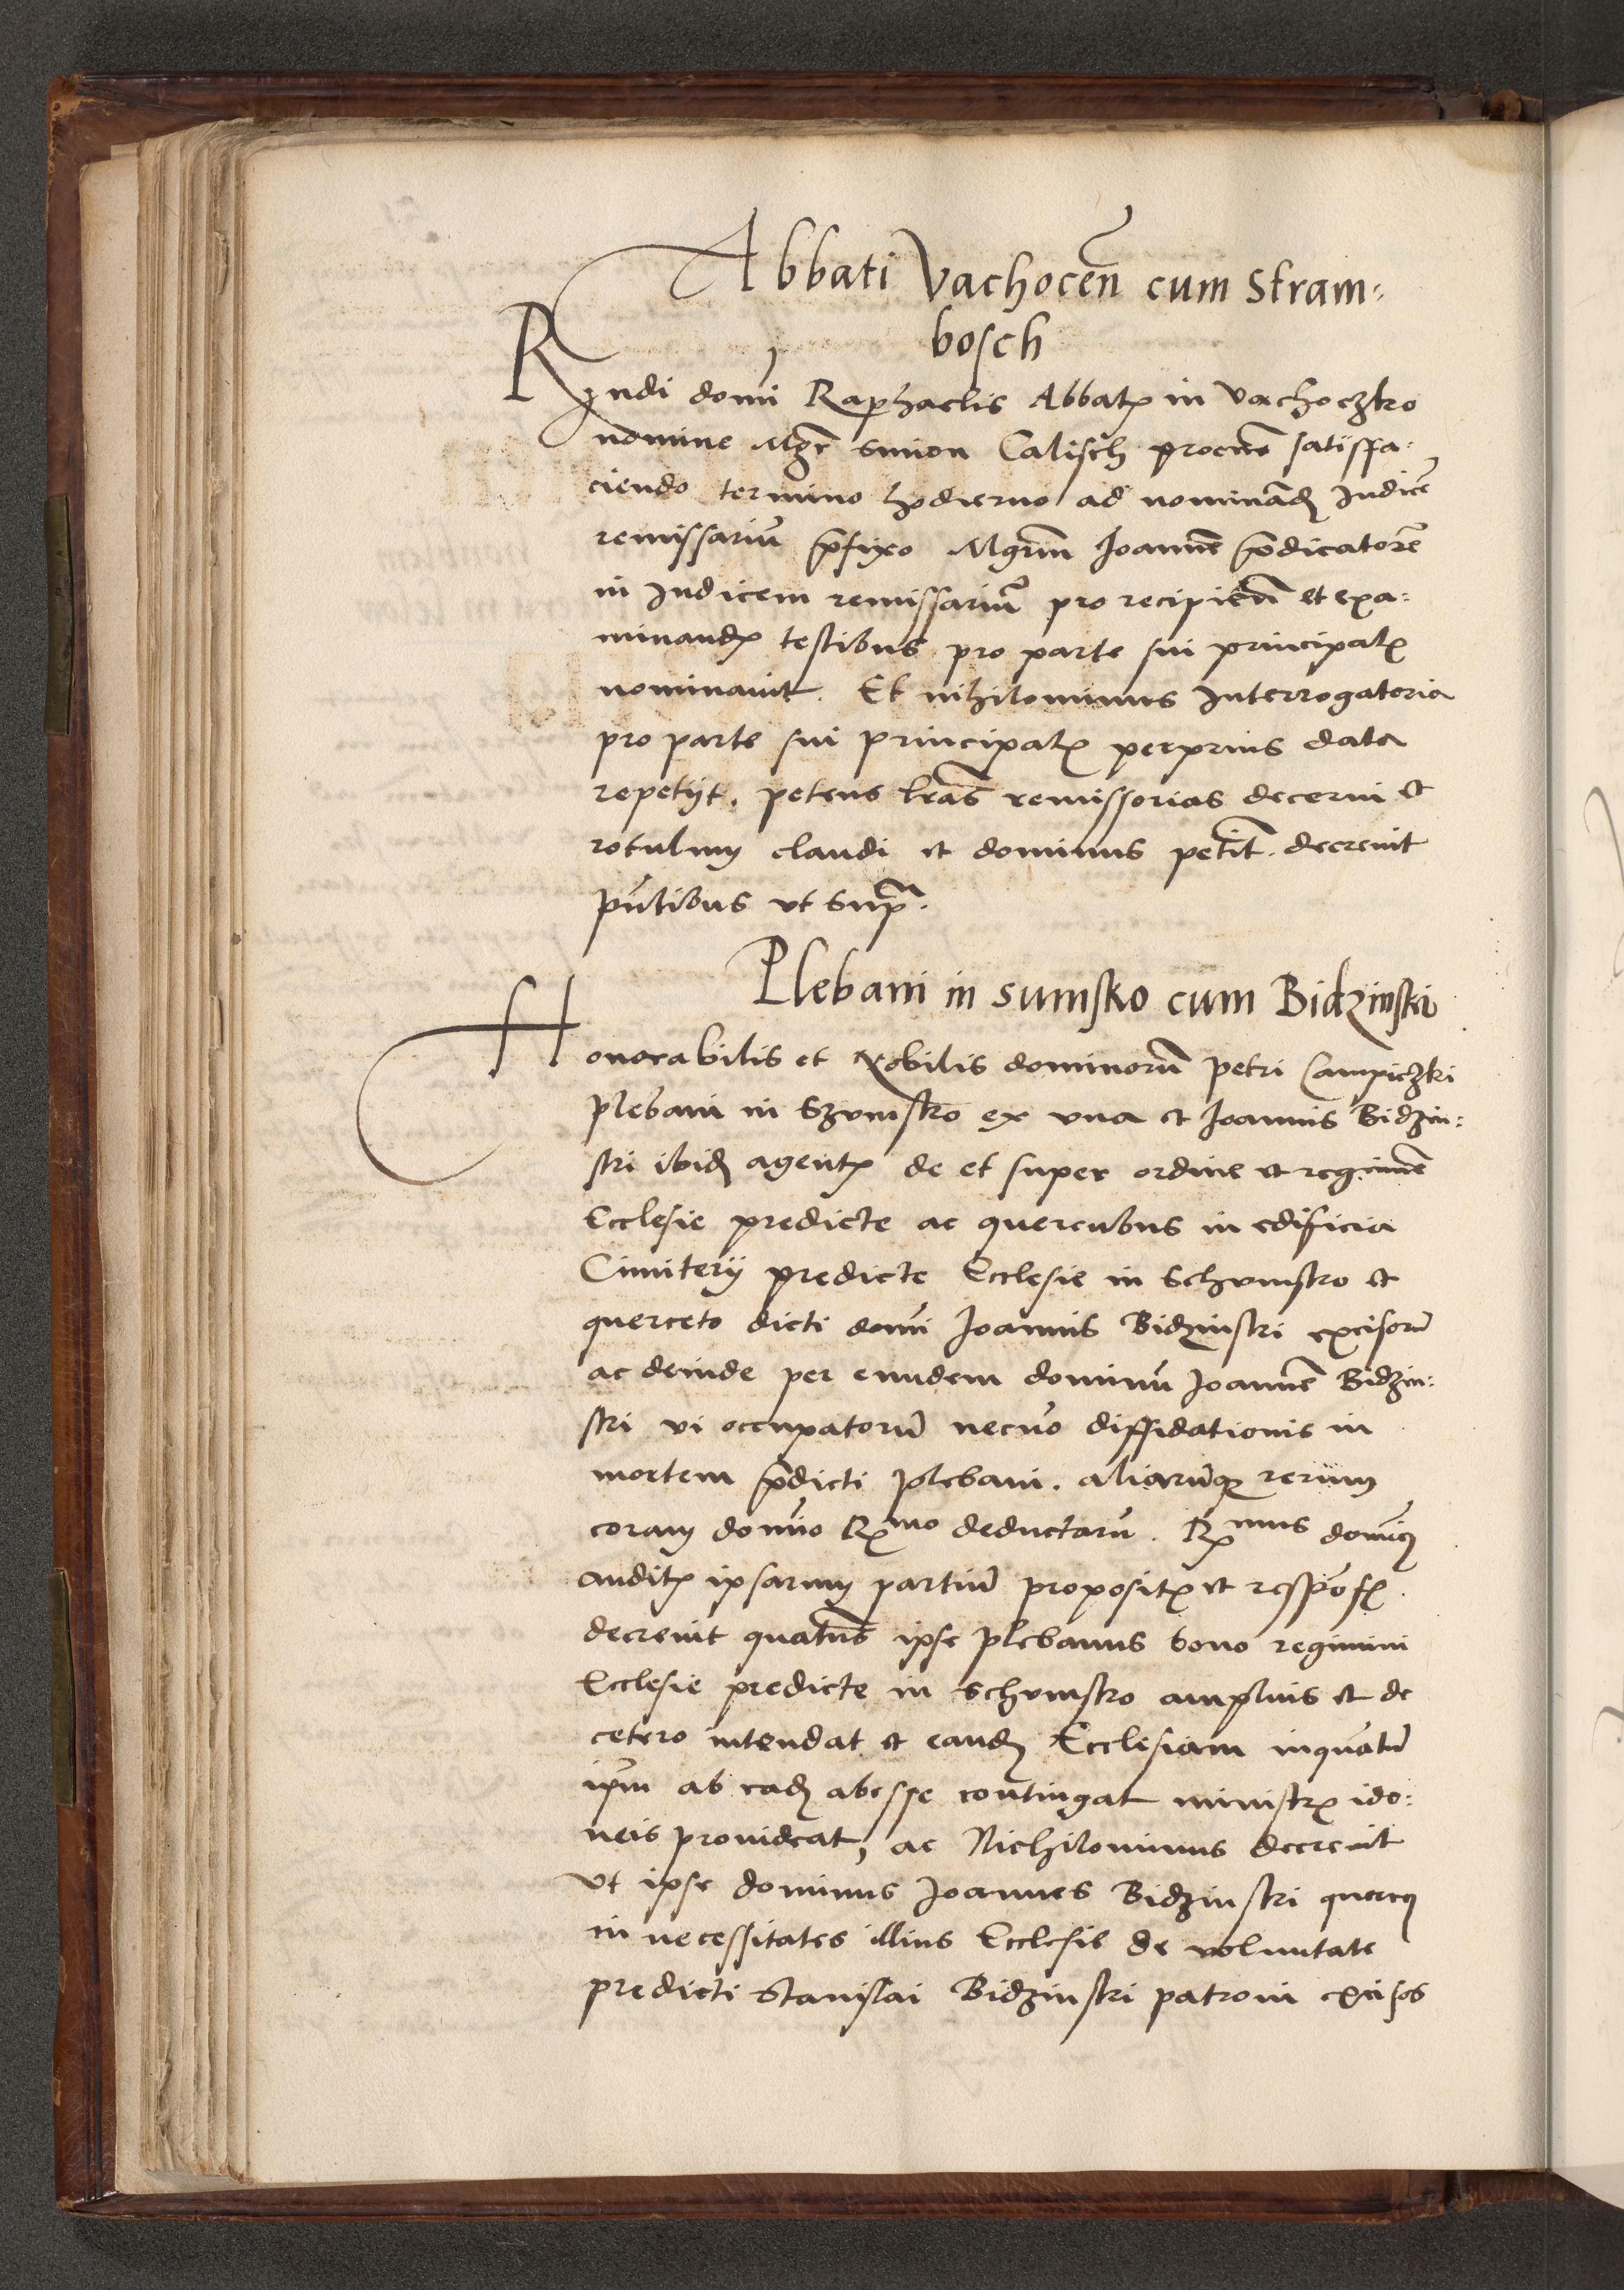 Abbati Vachoceñ cum Stram⸗
bosch
Rndi domi Raphaelis Abbatꝭ in Vachoczko
nomine Mgr Simon Calisch procue satisfa⸗
ciendo termino hodierno ad nominadꝫ Iudice
remissariū p̄fixo Mgrm̄ Joannē p̄dicatorē
in Iudicem remissariū pro recipień et exa⸗
minandꝭ testibus pro parte sui principalꝭ
nominauit. Et nihilominus Interrogatoria
pro parte sui principalꝭ perprius data
repetijt. petens lras remissorias decerni et
rotulum claudi et dominus petit. decreuit
pn̄tibus vt supra.
Plebani in sumsko cum Bidzinski
Honorabilis et Nobilis dominorū Petri Campiczki
plebani in Szumsko ex vna et Joannis Bidzin⸗
ski ibidꝫ agentꝭ de et super ordine et regimē
Ecclesie predicte ac quercubus in edificia
Cimiterij predicte Ecclesie in Schvmsko et
querceto dicti domi Joannis Bidzinski excisorū
ac deinde per eundem dominū Joannē Bidzin⸗
ski vi occupatorū necnō diffidationis in
mortem p̄dicti plebani. aliarūqꝫ rerum
coram domno Rmo deductarū. Rmus domꝰ
auditꝭ ipsarum partiū propositꝭ et respōsꝭ.
decreuit quatns ipse plebanus bono regimini
Ecclesie predicte in Schvmsko amplius et de
cetero intendat et eandꝫ Ecclesiam inquātū
ipm̄ ab eadꝫ abesse contingat ministrꝭ ido⸗
neis prouideat, ac Nichilominus decreuit
vt ipse dominus Joannes Bidzinski quercꝰ
in necessitates illius Ecclesie de voluntate
predicti Stanislai Bidzinski patroni excisos